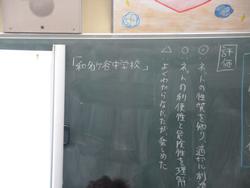 評価
◎ ネットの性質を知り、適切に判断
○ ネットの利便性と危険性を理解
△ よくわからなかったが、楽しめた
「和名ヶ谷中学校」